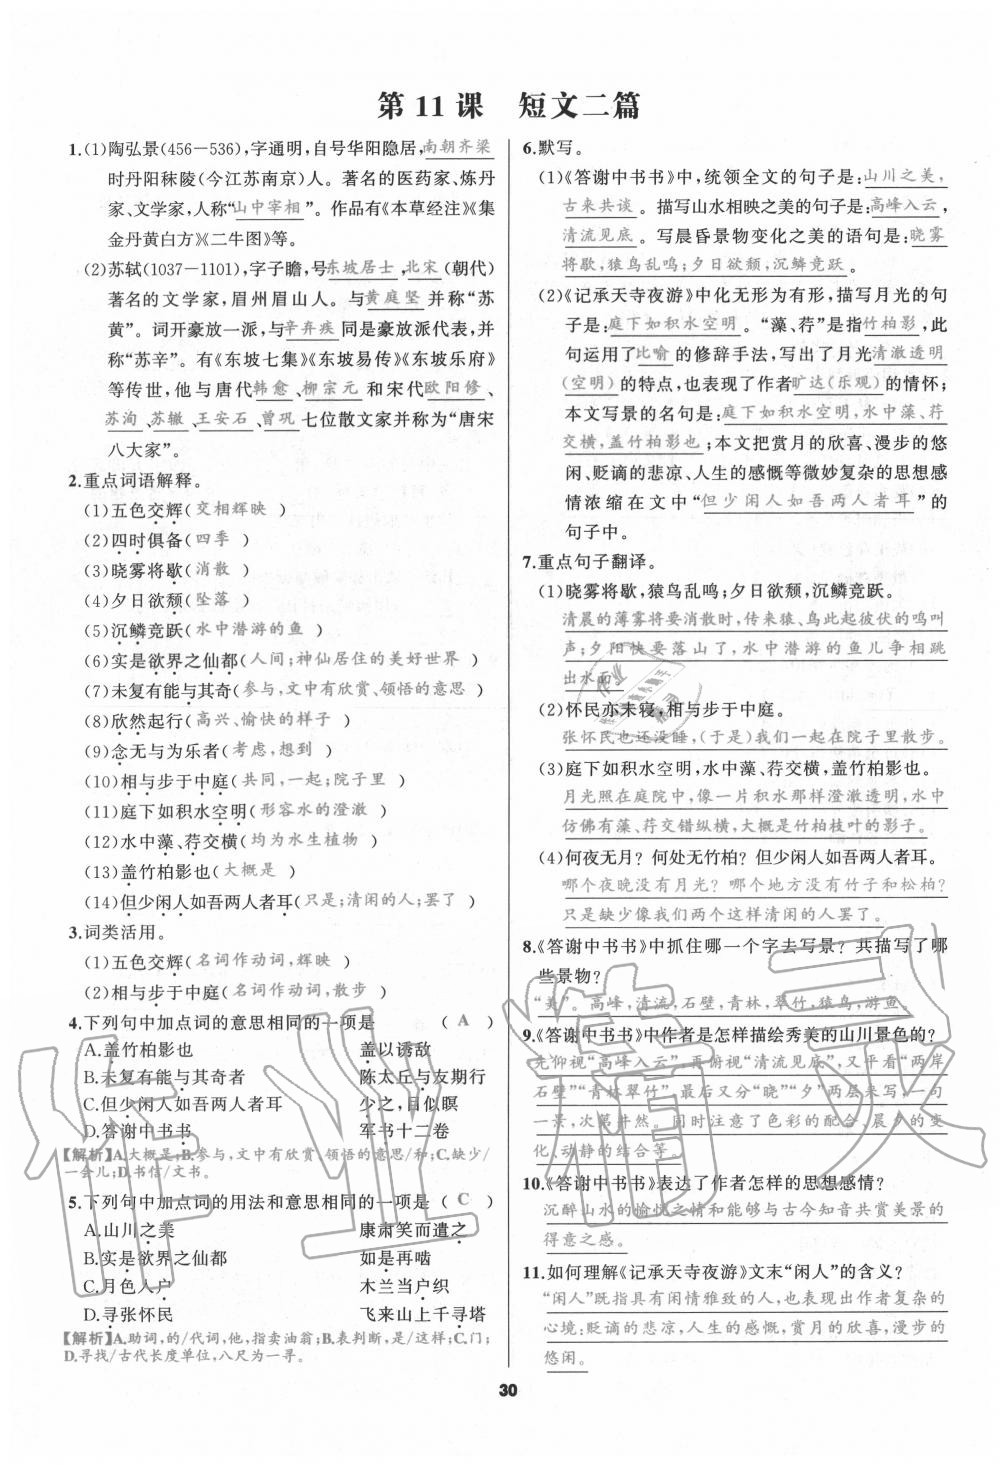 第 11 课　短文二篇
1.(1)陶弘景(456—536),字通明,自号华阳隐居,南朝齐梁
时丹阳秣陵(今江苏南京)人。著名的医药家、炼丹
家、文学家,人称“山中宰相”。作品有《本草经注》《集
金丹黄白方》《二牛图》等。
(2)苏轼(1037—1101),字子瞻,号东坡居士,北宋(朝代)
著名的文学家,眉州眉山人。与黄庭坚并称“苏
黄”。词开豪放一派,与辛弃疾同是豪放派代表,并
称“苏辛”。有《东坡七集》《东坡易传》《东坡乐府》
等传世,他与唐代韩愈、柳宗元和宋代欧阳修、
苏洵、苏辙、王安石、曾巩七位散文家并称为“唐宋
八大家”。
2.重点词语解释。
(1)五色交辉(交相辉映)
(2)四时俱备(四季)
(3)晓雾将歇(消散)
(4)夕日欲颓(坠落)
(5)沉鳞竞跃(水中潜游的鱼)
(6)实是欲界之仙都(人间;神仙居住的美好世界)
(7)未复有能与其奇(参与,文中有欣赏、领悟的意思)
(8)欣然起行(高兴、愉快的样子)
(9)念无与为乐者(考虑,想到)
(10)相与步于中庭(共同,一起;院子里)
(11)庭下如积水空明(形容水的澄澈)
(12)水中藻、荇交横(均为水生植物)
(13)盖竹柏影也(大概是)
(14)但少闲人如吾两人者耳(只是;清闲的人;罢了)
3.词类活用。
(1)五色交辉(名词作动词,辉映)
(2)相与步于中庭(名词作动词,散步)
4.下列句中加点词的意思相同的一项是 (A)
A.盖竹柏影也 盖以诱敌
B.未复有能与其奇者 陈太丘与友期行
C.但少闲人如吾两人者耳 少之,目似瞑
D.答谢中书书 军书十二卷
【解析】A.大概是;B.参与,文中有欣赏、领悟的意思/和;C.缺少/
一会儿;D.书信/文书。
5.下列句中加点词的用法和意思相同的一项是 (C)
A.山川之美 康肃笑而遣之
B.实是欲界之仙都 如是再啮
C.月色入户 木兰当户织
D.寻张怀民 飞来山上千寻塔
【解析】A.助词,的/代词,他,指卖油翁;B.表判断,是/这样;C.门;
D.寻找/古代长度单位,八尺为一寻。
6.默写。
(1)《答谢中书书》中,统领全文的句子是:山川之美,
古来共谈。描写山水相映之美的句子是:高峰入云,
清流见底。写晨昏景物变化之美的语句是:晓雾
将歇,猿鸟乱鸣;夕日欲颓,沉鳞竞跃。
(2)《记承天寺夜游》中化无形为有形,描写月光的句
子是:庭下如积水空明。“藻、荇”是指竹柏影,此
句运用了比喻的修辞手法,写出了月光清澈透明
(空明)的特点,也表现了作者旷达(乐观)的情怀;
本文写景的名句是:庭下如积水空明,水中藻、荇
交横,盖竹柏影也;本文把赏月的欣喜、漫步的悠
闲、贬谪的悲凉、人生的感慨等微妙复杂的思想感
情浓缩在文中“但少闲人如吾两人者耳”的
句子中。
7.重点句子翻译。
(1)晓雾将歇,猿鸟乱鸣;夕日欲颓,沉鳞竞跃。
清晨的薄雾将要消散时,传来猿、鸟此起彼伏的鸣叫
声;夕阳快要落山了,水中潜游的鱼儿争相跳
出水面。
(2)怀民亦未寝,相与步于中庭。
张怀民也还没睡,(于是)我们一起在院子里散步。
(3)庭下如积水空明,水中藻、荇交横,盖竹柏影也。
月光照在庭院中,像一片积水那样澄澈透明,水中
仿佛有藻、荇交错纵横,大概是竹柏枝叶的影子。
(4)何夜无月？何处无竹柏？但少闲人如吾两人者耳。
哪个夜晚没有月光？哪个地方没有竹子和松柏？
只是缺少像我们两个这样清闲的人罢了。
8.《答谢中书书》中抓住哪一个字去写景？共描写了哪
些景物？
“美”。高峰,清流,石壁,青林,翠竹,猿鸟,游鱼。
9.《答谢中书书》中作者是怎样描绘秀美的山川景色的？
先仰视“高峰入云”,再俯视“清流见底”,又平看“两岸
石壁”“青林翠竹”,最后又分“晓”“夕”两层来写,一句
一景,次第井然。同时注意了色彩的配合、晨夕的变
化、动静的结合等。
10.《答谢中书书》表达了作者怎样的思想感情？
沉醉山水的愉悦之情和能够与古今知音共赏美景的
得意之感。
11.如何理解《记承天寺夜游》文末“闲人”的含义？
“闲人”既指具有闲情雅致的人,也表现出作者复杂的
心境:贬谪的悲凉,人生的感慨,赏月的欣喜,漫步的
悠闲。
30
作业精灵